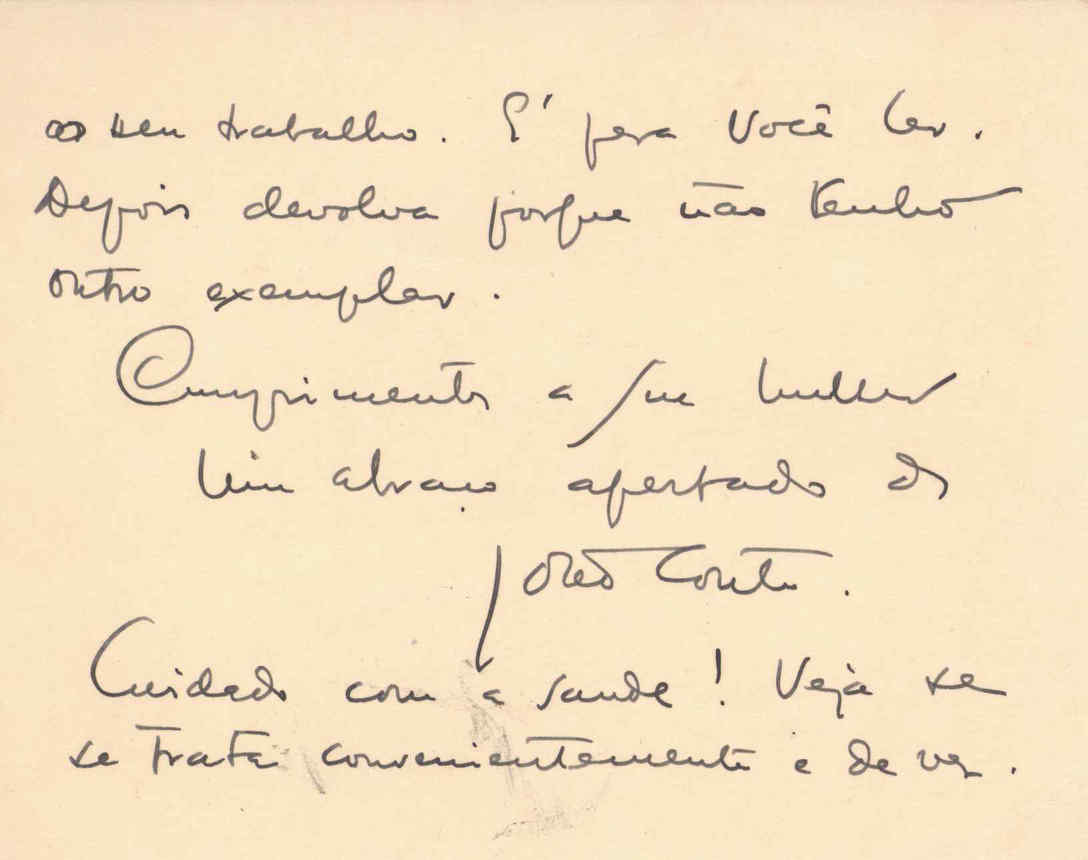 ao seu trabalho. E' para Você ler.
Depois devolva porque não tenho
outro exemplar.
Cumprimentos a sua mulher
Um abraço apertado do
João Conde.
Cuidado com a saude! Veja se
se trata convenientemente e de vez.